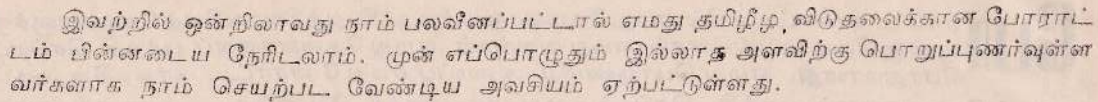 இவற்றில் ஒன்றிலாவது நாம் பலவீனப்பட்டால் எமது தமிழீழ விடுதலைக்கான போராட்
டம் பின்னடைய நேரிடலாம். முன் எப்பொழுதும் இல்லாத அளவிற்கு பொறுப்புணர்வுள்ள
வர்களாக நாம் செயற்பட வேண்டிய அவசியம் ஏற்பட்டுள்ளது.